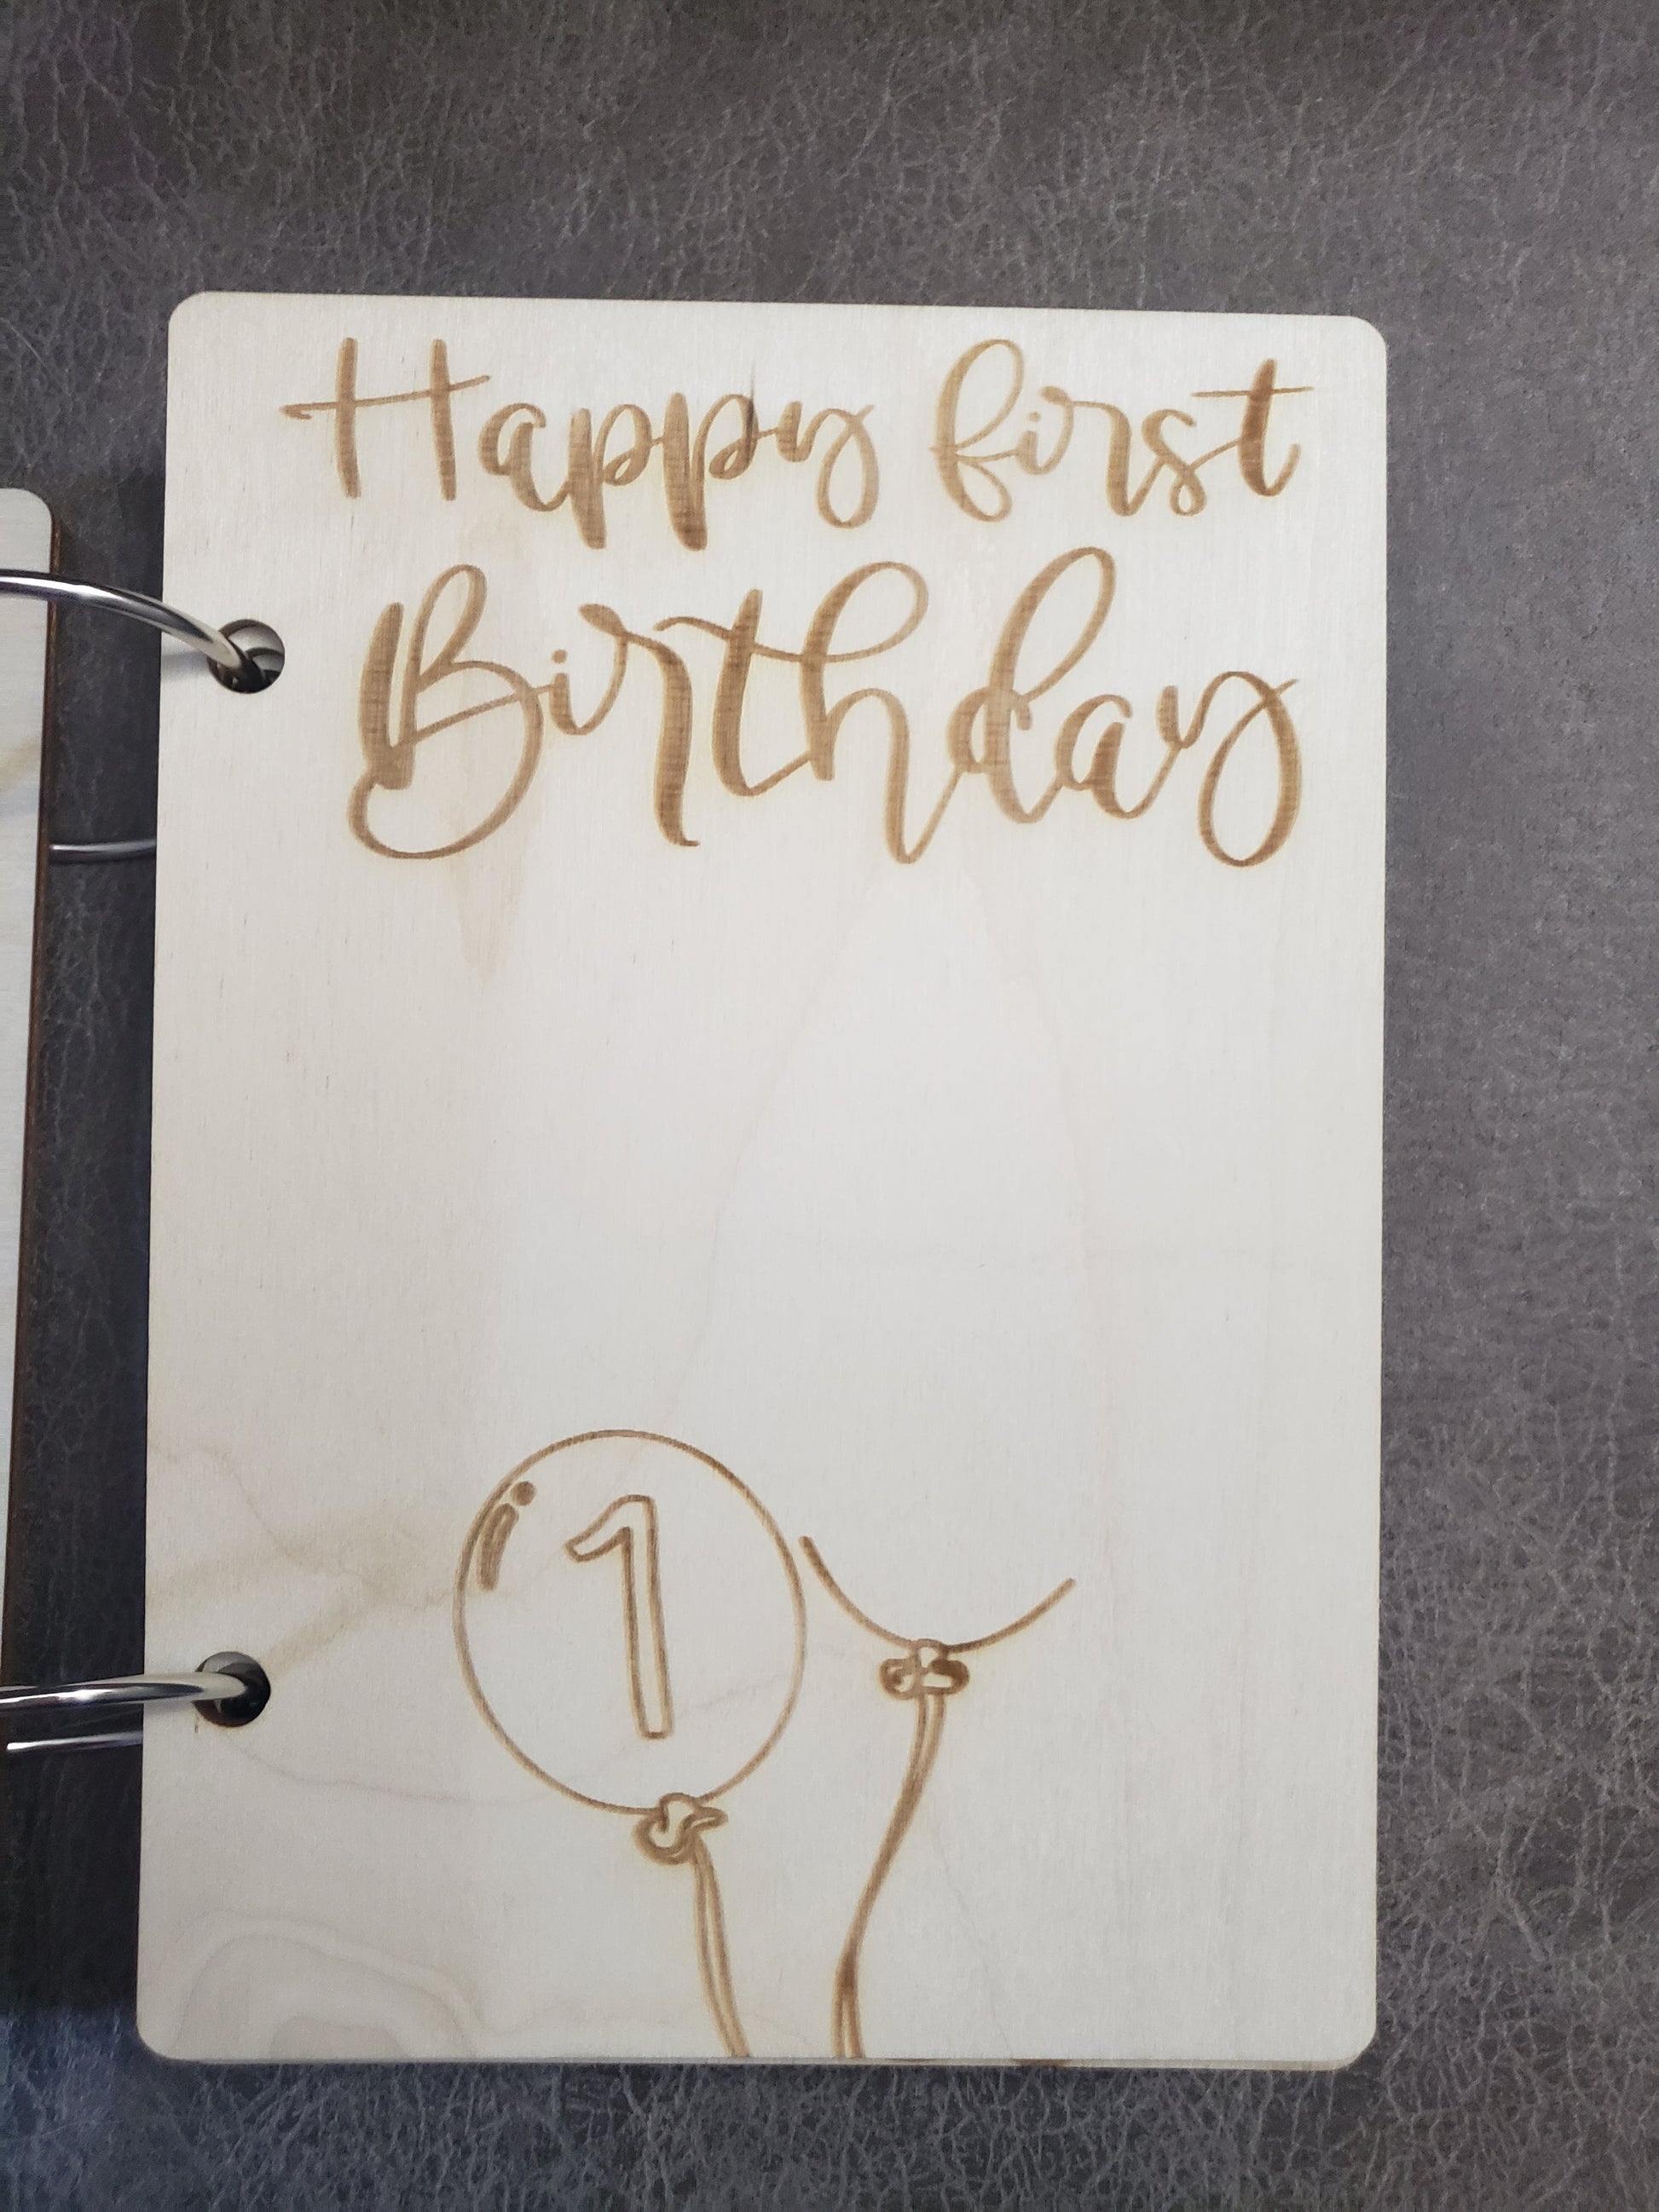 Happy first
Birthday
1